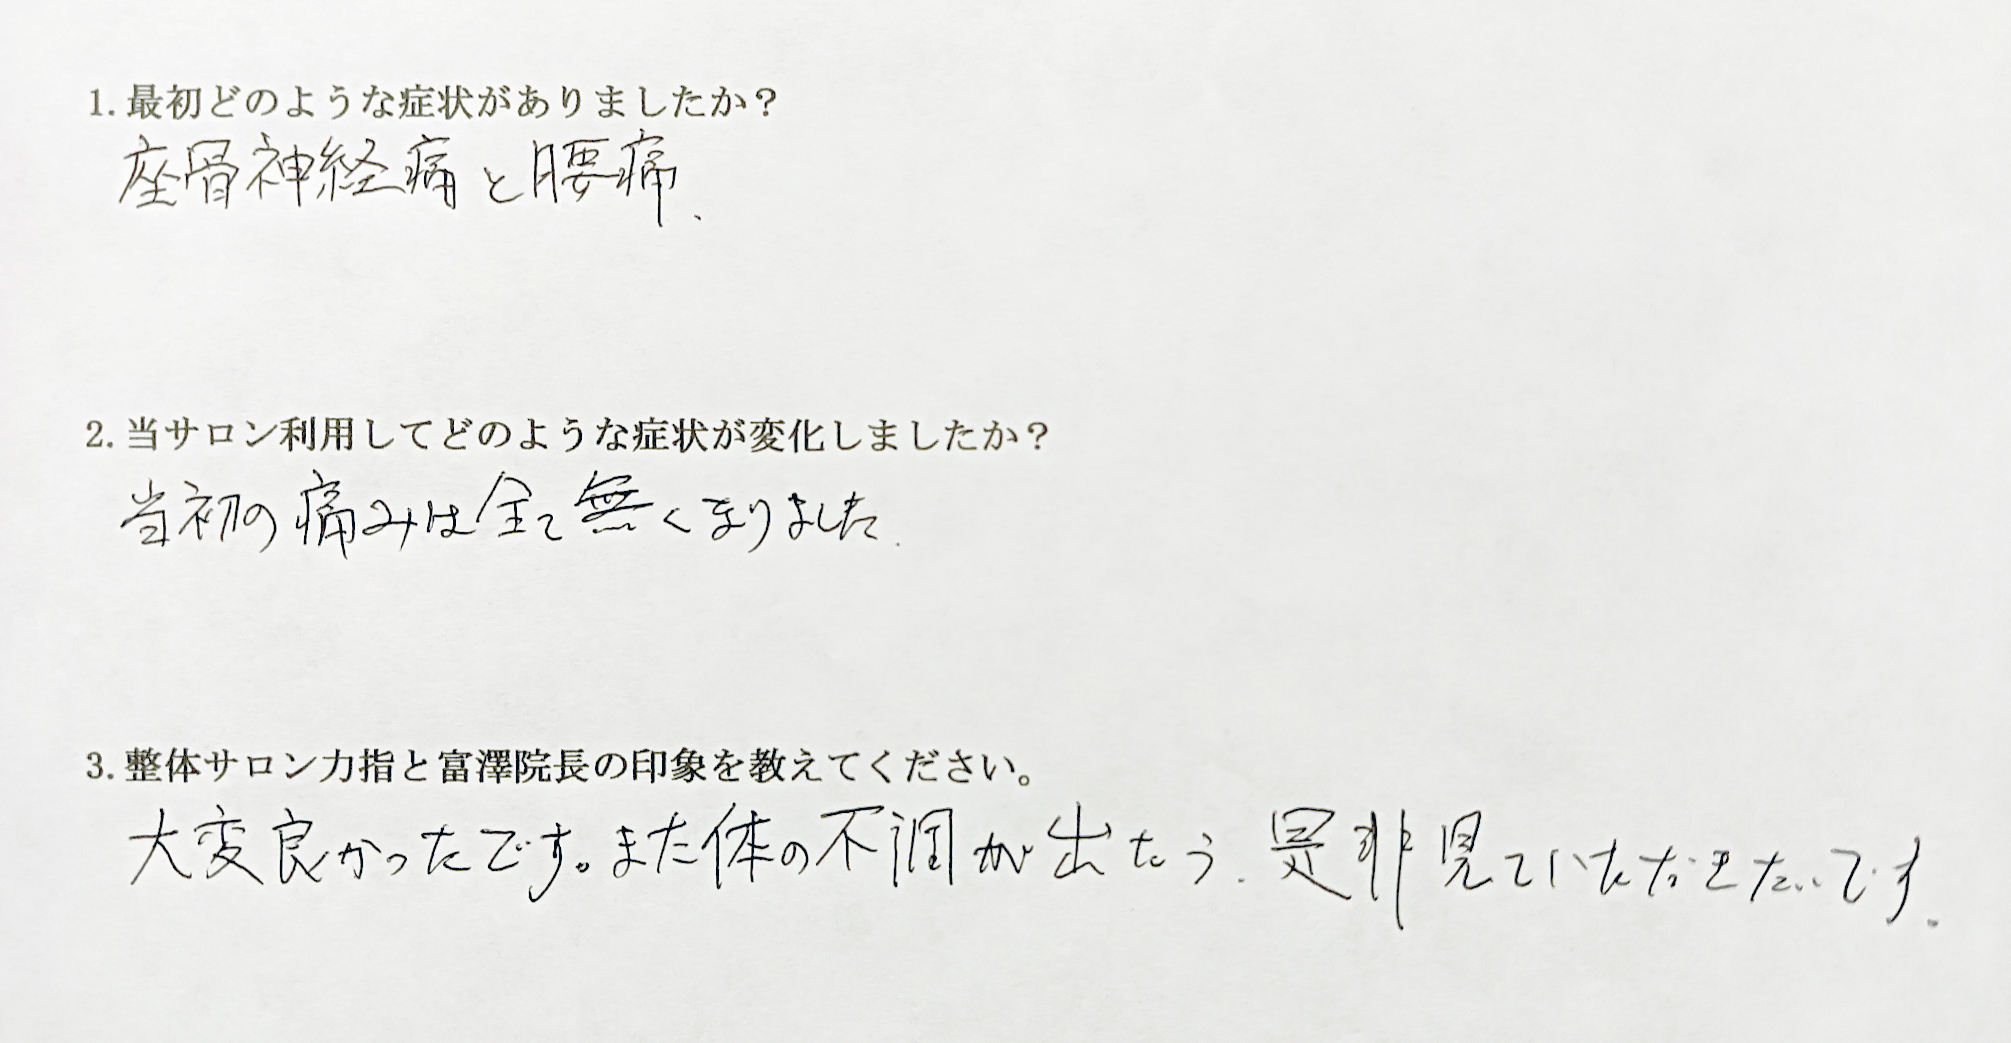 1. 最初どのような症状がありましたか？
座骨神経痛と腰痛.
2. 当サロン利用してどのような症状が変化しましたか？
当初の痛みは全て無くなりました.
3. 整体サロン力指と富澤院長の印象を教えてください。
大変良かったです。また体の不調が出たら.是非見ていただきたいです.